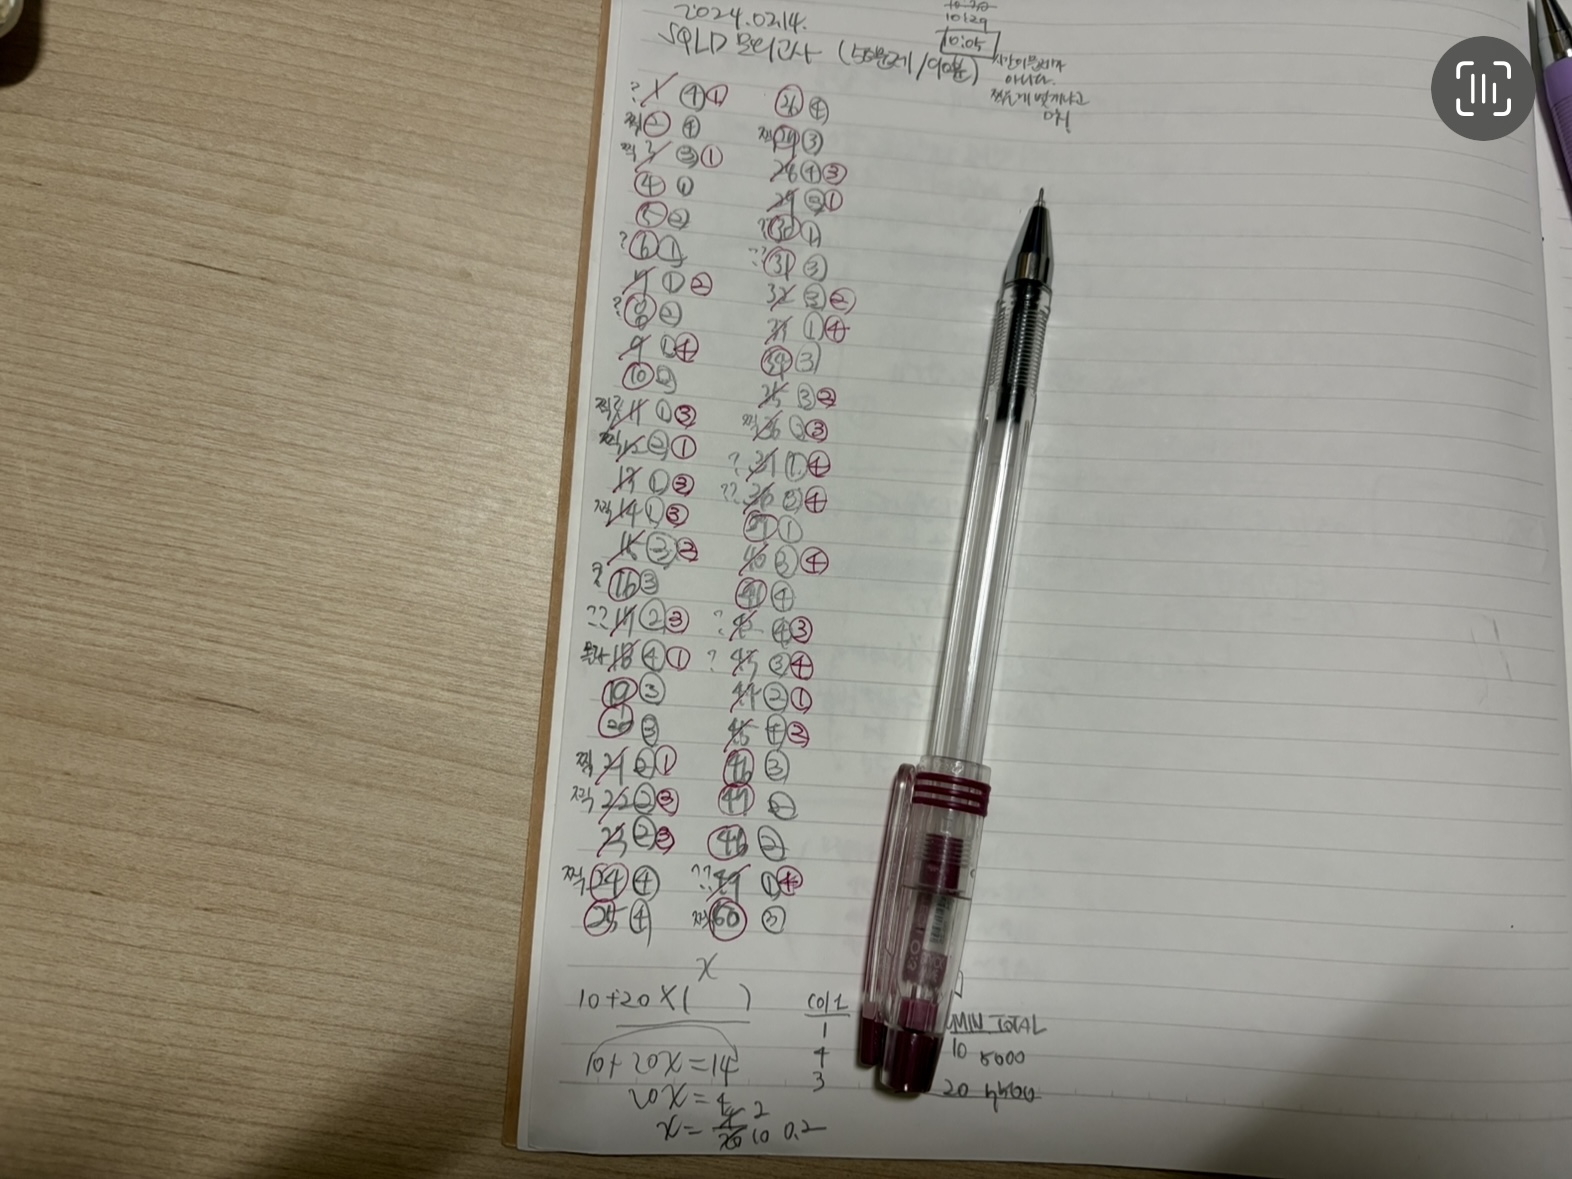 2024.02.14.
SQLD 모의고사 (50문제/90분)
10:29
10:05
시간이 문제가
아니다.
? 1 ④ ①
찍 2 ④
찍 3 ③ ①
4 ①
5 ②
? 6 ①
7 ① ②
? 8 ②
9 ① ④
10 ②
찍? 11 ① ③
찍 12 ② ①
13 ① ③
찍 14 ① ③
15 ③ ②
? 16 ③
?? 17 ② ③
18 ④ ①
19 ③
20 ③
찍 21 ② ①
찍 22 ② ③
23 ② ③
찍 24 ④
25 ④
26 ④
찍 27 ③
28 ④ ③
29 ③ ①
? 30 ①
?? 31 ③
32 ③ ②
33 ① ④
34 ③
35 ③ ②
찍 36 ② ③
? 37 ① ④
?? 38 ③ ④
39 ①
40 ③ ④
41 ④
? 42 ④ ③
? 43 ③ ④
44 ② ①
45 ④ ③
46 ③
47 ②
48 ②
?? 49 ① ④
찍 50 ③
x
10+20×( )
10+20x=14
20x=4
x= 4 2
20 10 0.2
col1
1
4
3
MIN TOTAL
10 5000
20 4500